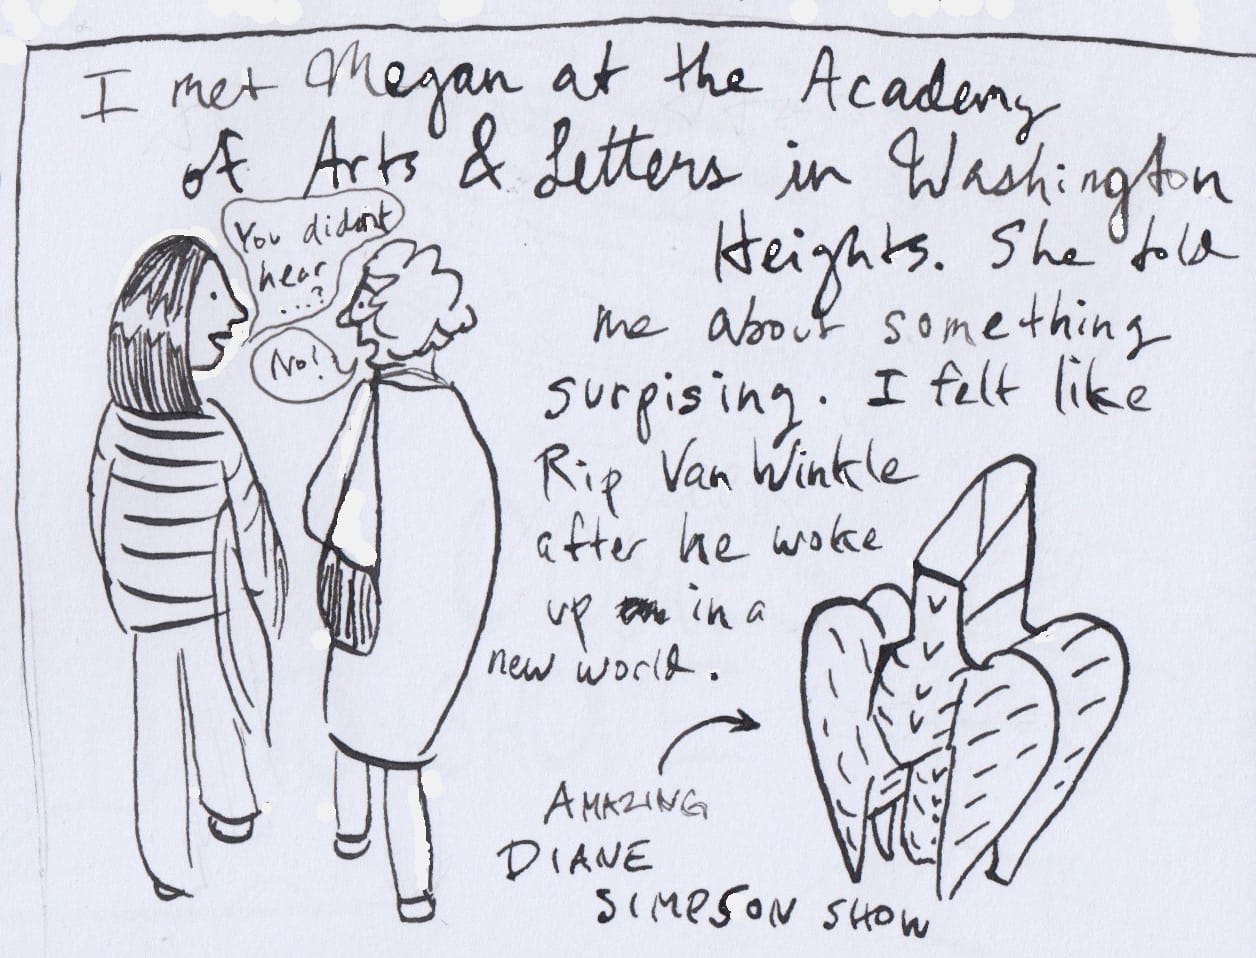 I met Megan at the Academy
of Arts & Letters in Washington
Heights. She told
me about something
surpising. I felt like
Rip Van Winkle
after he woke
up in a
new world.
You didant
hear
...?
No!
AMAZING
DIANE
SIMPSON SHOW